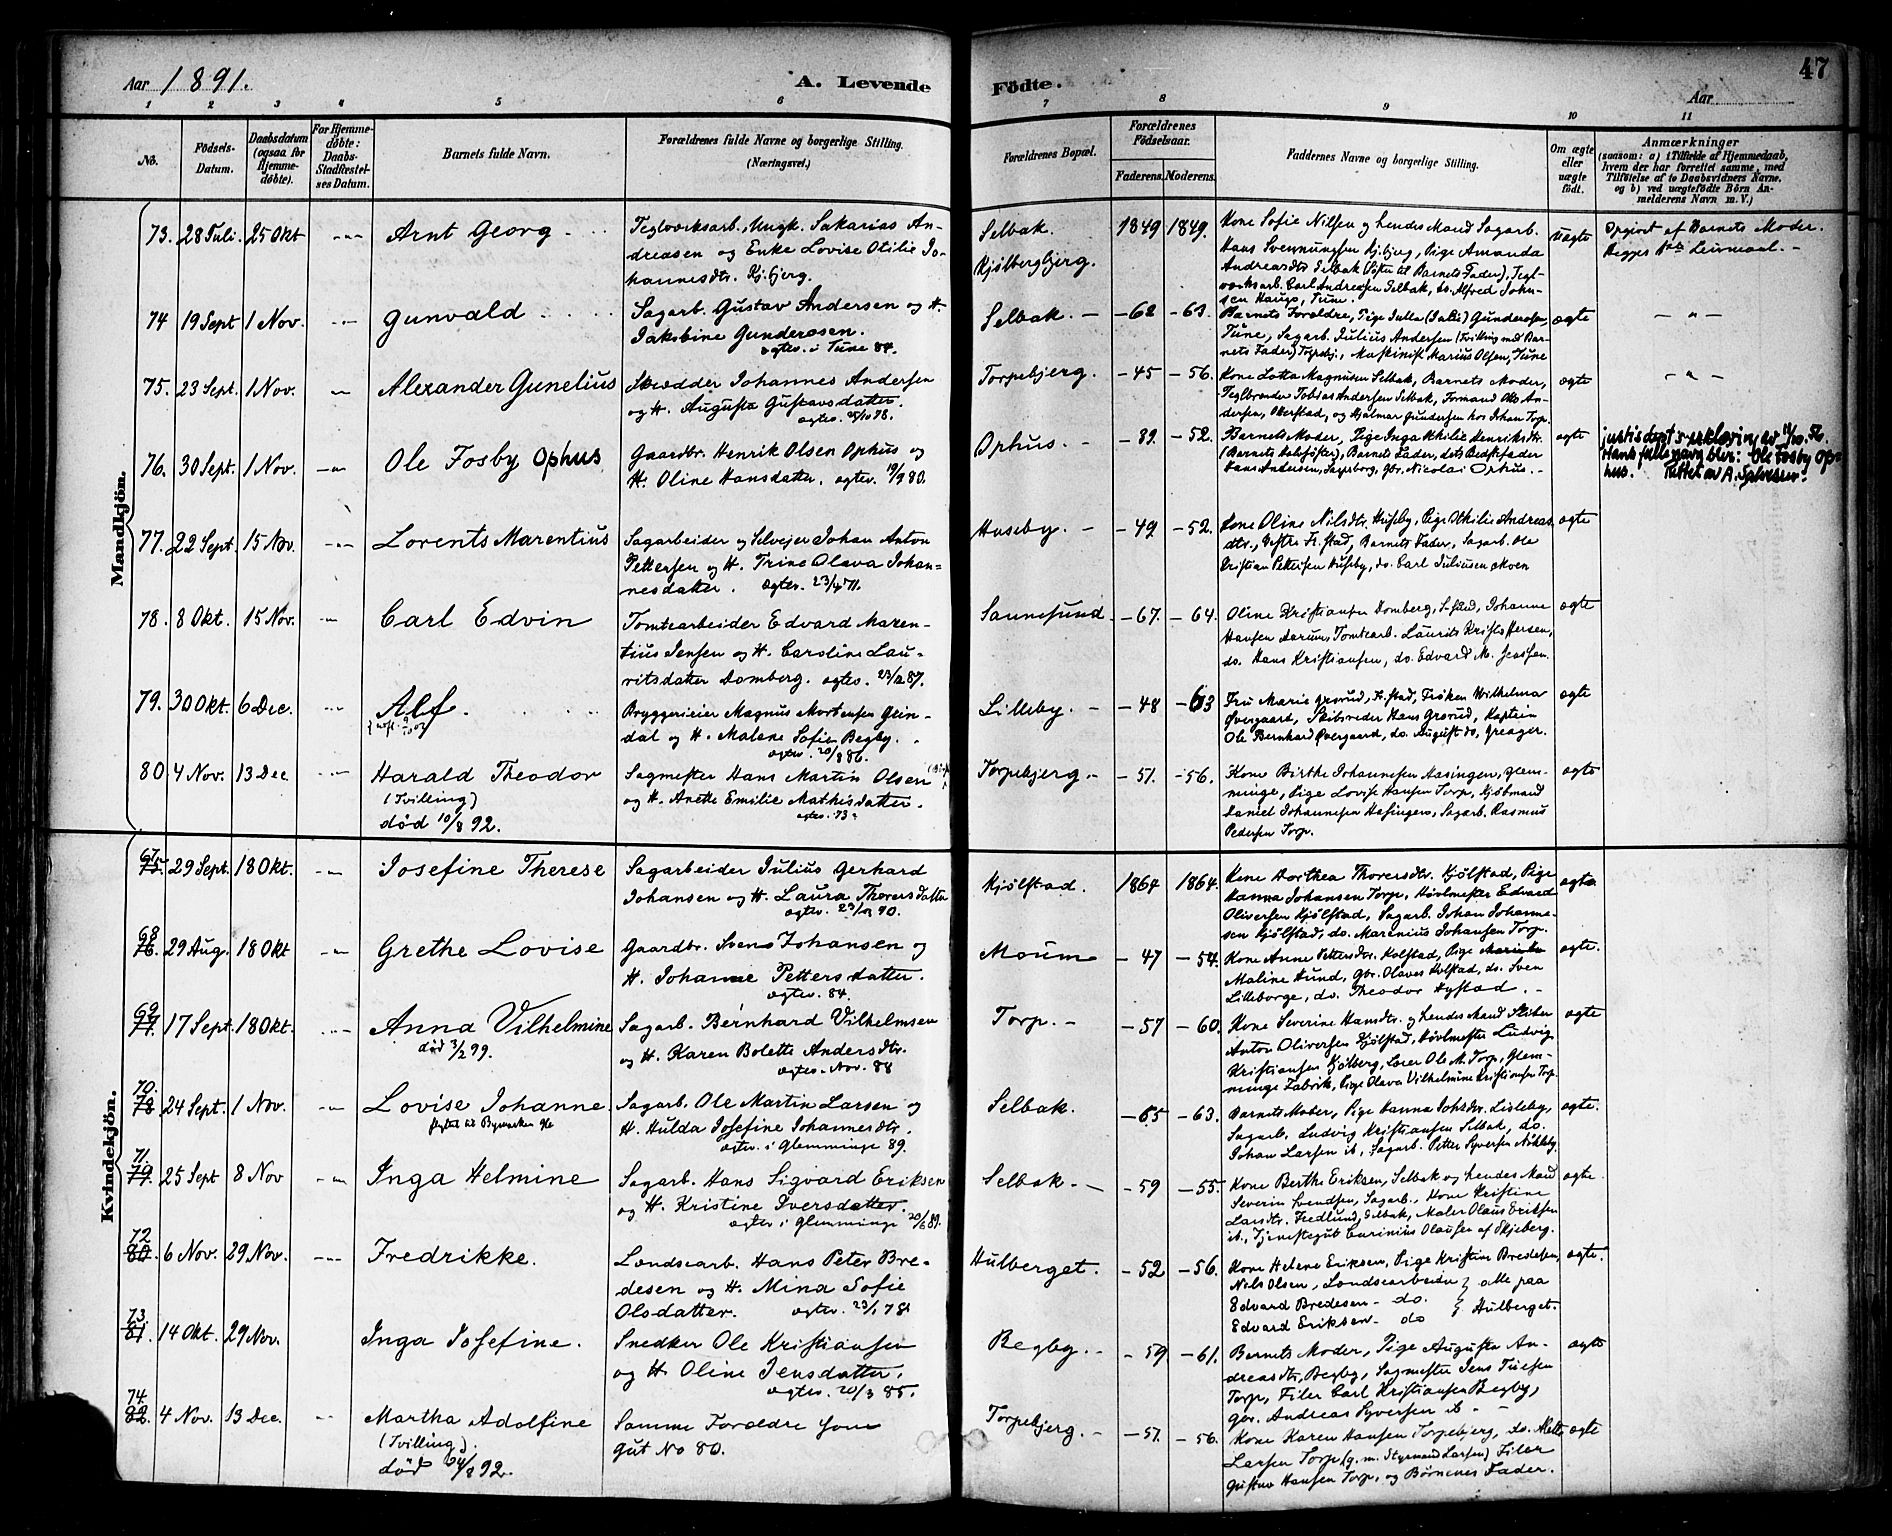 Aar 1891. A. Levende Födte. Aar 47
1 2 3 4 5 6 7 8 9 10 11
No.
Födsels-Datum.
Daabsdatum (ogsaa for Hjemme-döbte).
For Hjemme-döbte: Daabs-Stadfæstel-ses Datum.
Barnets fulde Navn.
Forældrenes fulde Navne og borgerlige Stilling. (Næringsvei.)
Forældrenes Bopæl.
Forældrenes Födselsaar.
Faderens. Moderens.
Faddernes Navne og borgerlige Stilling.
Om ægte eller uægte födt.
Anmærkninger
(saasom: a) i Tilfælde af Hjemmedaab,
hvem der har forrettet samme, med
Tilföielse af to Daabsvidners Navne,
og b) ved uægtefödte Börn An-
melderens Navn m. V.)
Mandkjön.
73. 28 Juli. 25 Okt -"- Arnt Georg.
Teglværksarb., Ungk. Sakarias An-
dreasen og Enke Lovise Otilie Jo-
hannesdtr. Kj.bjerg.
Selbak. Kjölbergbjerg. 1849 1849.
Kone Sofie Nilsen og hendes Mand Sagarb.
Hans Svennungsen Kj.bjerg, Pige Amanda
Andreasdtr Selbak (Søster til Barnets Fader), Tegl-
værksarb. Carl Andreasen Selbak, do. Alfred John-
sen Hauge, Tune.
uægte
Opgivet af Barnets Moder.
Begges 1ste Leiermaal. -
74 19 Sept 1 Nov. -"- Gunvald
Sagarb. Gustav Andersen og H.
Jakobine Gundersen.
ægtev. i Tune 84.
Selbak. - -62 -63.
Barnets Forældre, Pige Julla (Julie) Gundersen,
Tune, Sagarb. Julius Andersen (Tvilling med Bar-
nets Fader) Torpebj., Maskinist Marius Olsen, Tune
ægte - " -
75. 23 Sept. 1 Nov. -"- Alexander Gunelius
Skrædder Johannes Andersen
og H. Augusta Gustavsdatter.
ægtev. 28/10 78.
Torpebjerg. -45 -56.
Kone Lotta Magnusen Selbak, Barnets Moder,
Teglbrænder Tobias Andersen Selbak, Formand Ole An-
dersen, Oberstad, og Hjalmar Gundersen hos Johan Torp.
ægte - " -
76. 30 Sept. 1 Nov. -"- Ole Fosby Ophus
Gaardbr. Henrik Olsen Ophus og
H. Oline Hansdatter. ægtev. 19/9 80.
Ophus. - -39. -52.
Barnets Moder, Pige Inga Othilie Henriksdtr.
(Barnets Halvsøster), Barnets Fader, dets Bedstefader
Hans Andersen, Sarpsborg, gbr. Nicolai Ophus. -
ægte
Justisdept's erklæring av 11/10.56.
Hans fulle navn blir: Ole Fosby Op-
hus. Rettet av
77. 22 Sept. 15 Nov. -"- Lorents Marentius
Sagarbeider og Selveier Johan Anton
Pettersen og H. Trine Olava Johan-
nesdatter. ægtev. 23/4 71.
Huseby. - -49 -52.
Kone Oline Nilsdtr. Huseby, Pige Othilie Andreas-
dtr., Vestre Fr.stad, Barnets Fader, Sagarb. Ole
Kristian Pettersen Huseby, do. Carl Juliusen Moen
ægte
78. 8 Okt. 15 Nov. -"- Carl Edvin
Tomtearbeider Edvard Maren-
tius Jensen og H. Caroline Lau-
ritsdatter Domberg. ægtev. 87.
Sannesund. -67. -64.
Oline Kristiansen Domberg, Johanne
Hansen Borum, Tomtearb. Laurits Kristoffersen,
do. Hans Kristiansen, do. Edvard M. Jensen.
ægte
79. 30 Okt. 6 Dec. -"- Alf.
Bryggerieier Magnus Mortensen Grin-
dal og H. Malene Sofie Begby.
ægtev. 20/8 86.
Lilleby. - -48 -63
Fru Marie Grorud, Fr.stad, Frøken Wilhelma
Overgaard, Skibsreder Hans Grorud, Kaptein
Ole Bernhard Overgaard, do. August do, Greager.
ægte
80 4 Nov. 13 Dec -"- Harald Theodor
(Tvilling)
död 10/8 92.
Sagmester Hans Martin Olsen
og H. Anette Emilie Mathisdatter.
ægtev. 73.
Torpebjerg - -51. -56.
Kone Birthe Johannesen Aasingen, Glem-
minge, Pige Lovise Hansen Torp, Kjöbmand
Daniel Johannesen Hasingen, Sagarb. Rasmus
Pedersen Torp.
ægte
Kvindekjön.
67. 75. 29 Sept. 18 Okt. -"- Josefine Therese
Sagarbeider Julius Gerhard
Johansen og H. Laura Thorersdatter
ægtev. 90.
Kjölstad. 1864 1864.
Kone Dorthea Thorersdtr. Kjölstad, Pige
Hanna Johansen Torp, Hövlmester Edvard
Oliversen Kjölstad, Sagarb. Johan Johanne-
sen Kjölstad, do. Marenius Johansen Torp.
ægte.
68 76. 29 Aug. 18 Okt -"- Grethe Lovise
Gaardbr. Svend Johansen og
H. Johanne Pettersdatter.
ægtev. 84.
Moum -47 -54.
Kone Anne Pettersdtr. Holstad, Pige
Maline Hund, gbr. Olaves Holstad, do. Sven
Lilleborge, do. Theodor Hystad. -
ægte.
69 77. 17 Sept. 18 Okt. -"- Anna Vilhelmine
död 3/2 99.
Sagarb. Bernhard Vilhelmsen
og H. Karen Bolette Andersdtr.
ægtev. Nov. 88
Torp. - -57 -60.
Kone Severine Hansdtr. og hendes Mand
Anton Oliversen Kjölstad, Hövlmester Ludvig
Kristiansen Kjölberg, Lærer Ole M. Torp, Glem-
minge Fabrik, Pige Olava Vilhelmine Kristiansen Torp.
ægte
70. 78 24 Sept. 1 Nov. -"- Lovise Johanne.
flyttet til Bymarken
Sagarb. Ole Martin Larsen og
H. Hulda Josefine Johannesdtr.
ægtev. i Glemminge 89.
Selbak. -65 -63.
Barnets Moder, Pige Hanna Johsdtr. Lisleby,
Sagarb. Ludvig Kristiansen Selbak, do.
Johan Larsen ib, Sagarb. Petter Syversen Nikleby.
ægte.
71. 79. 25 Sept 8 Nov -"- Inga Helmine
Sagarb. Hans Sigvard Eriksen
og H. Kristine Iversdatter.
ægtev i Glemminge 20/6 89.
Selbak. - -59 -55.
Kone Berthe Eriksen, Selbak og hendes Mand
Severin Svendsen, Sagarb., Kone Kristine
Larsdtr. Fredlund, Selbak, Maler Olaus Eriksen
ib., Tjenestegut Carinius Olausen af Skjeberg.
ægte.
72 80. 6 Nov. 29 Nov. -"- Fredrikke.
Landsearb. Hans Peter Bre-
desen og H. Mina Sofie
Olsdatter. ægtev. 23/1 78
Hulberget. -52 -56.
Kone Helene Eriksen, Pige Kristine Bredesen,
Nils Olsen, Landsearbeider } alle paa
Edvard Bredesen - do. } Hulberget.
Edvard Eriksen - do
ægte.
73. 81. 14 Okt. 29 Nov. Inga Josefine.
Snedker Ole Kristiansen
og H. Oline Jensdatter.
ægtev. 20/3 85.
Begby. - -59 -61.
Barnets Moder, Pige Augusta An-
dreasdtr, Begby, Sagmester Jens Tuesen
Torp, Filer Carl Kristiansen Begby,
gbr. Andreas Syversen ib -
ægte
74 82. 4 Nov. 13 Dec. -"- Martha Adolfine
(Tvilling).
död 24/8 92.
Samme Forældre som
Gut No 80.
Torpebjerg. - -51. -56.
Kone Karen Hansen Torpebjerg, do. Mette
Larsen Torp (g. m. Styrmand Larsen) Filer
Gustav Hansen Torp, og Börnenes Fader.
ægte